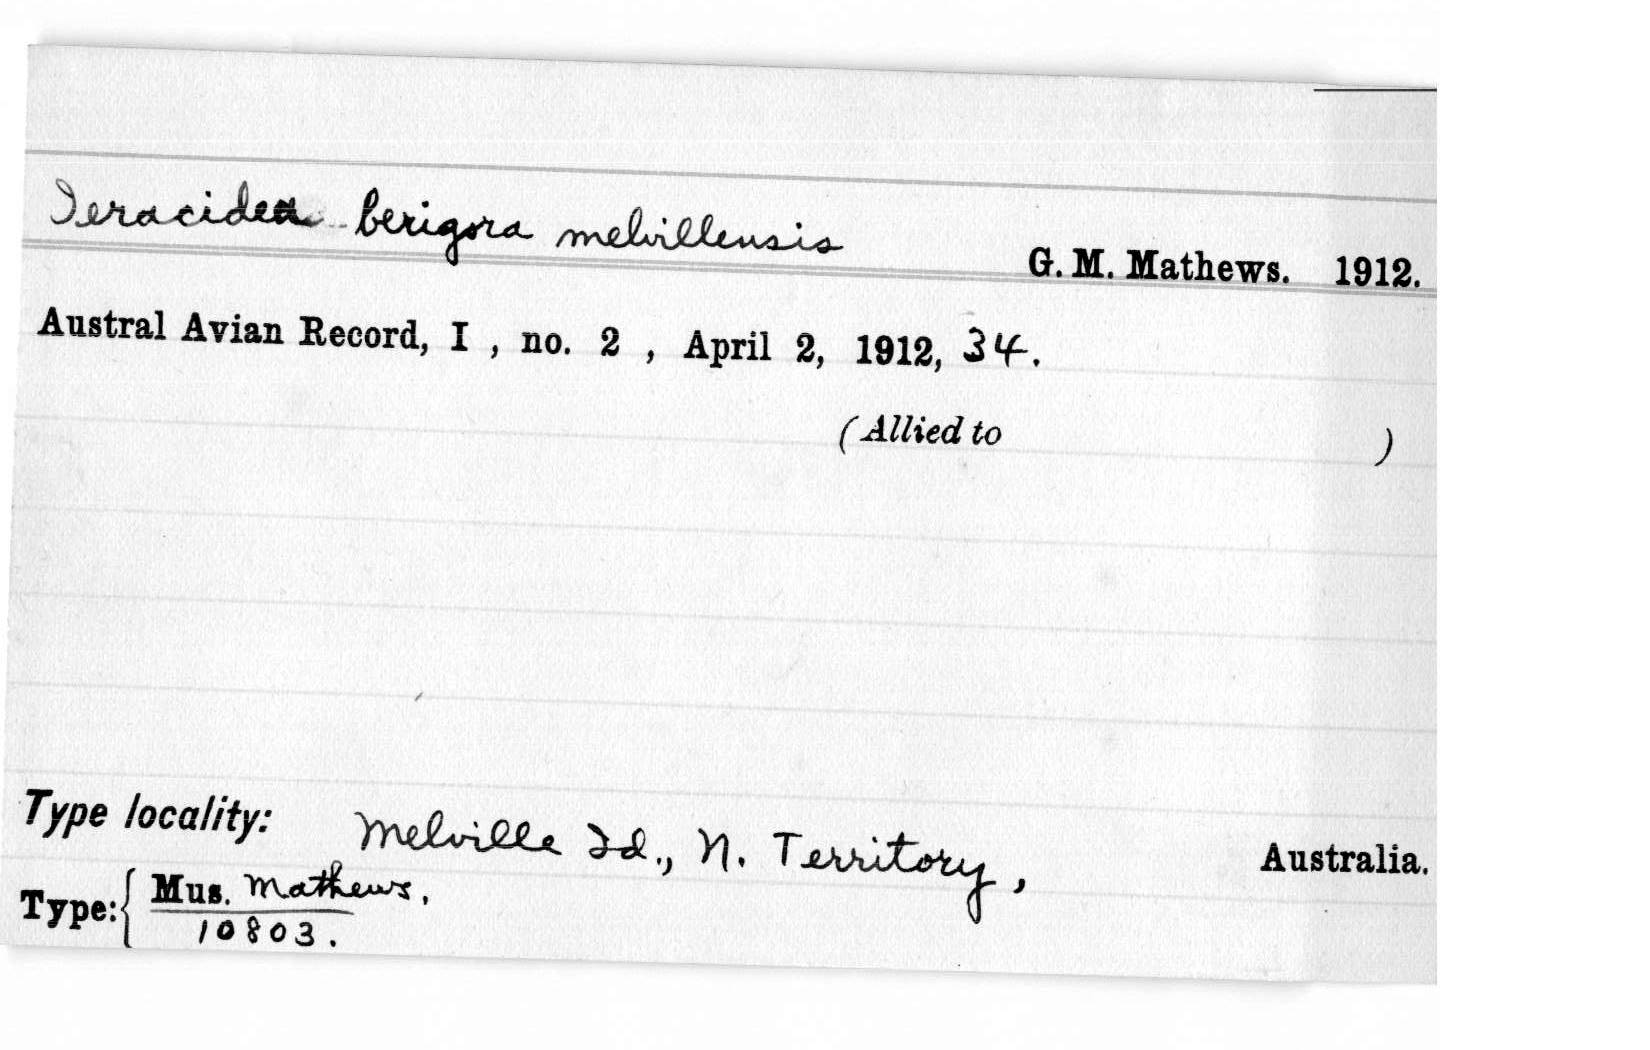 Ieracidea berigora melvillensis G. M. Mathews. 1912.
Austral Avian Record, I , no. 2 , April 2, 1912, 34.
(Allied to )
Type locality: Melville Id., N. Territory, Australia.
Type: { Mus. Mathews.
10803.